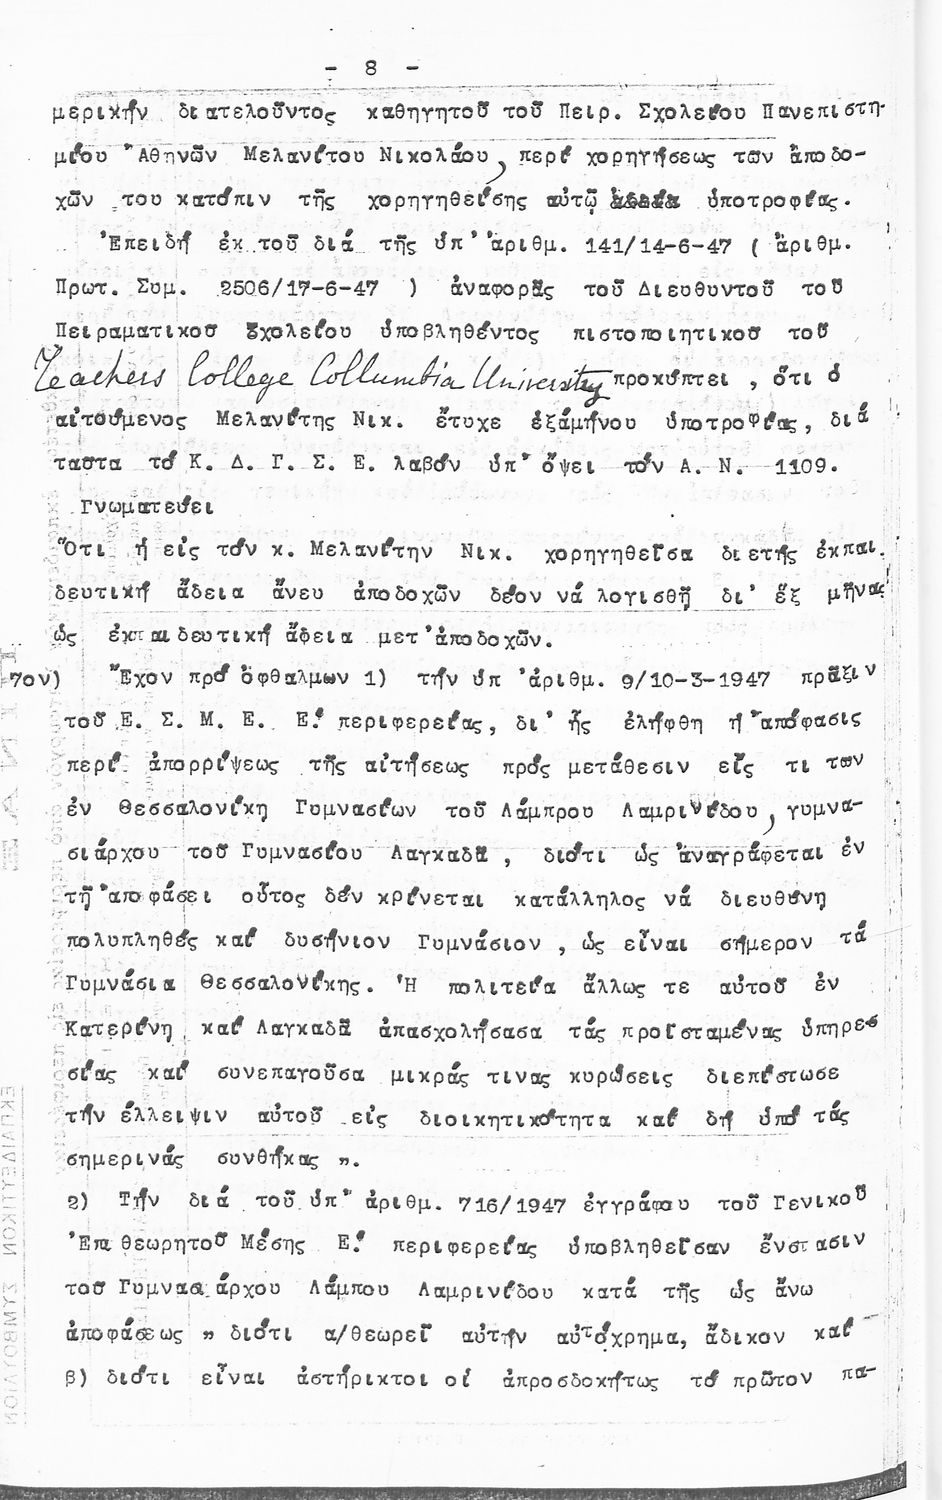 - 8 -
μερικήν διατελοῦντος καθηγητοῦ τοῦ Πειρ. Σχολείου Πανεπιστη-
μίου Ἀθηνῶν Μελανίτου Νικολάου, περί χορηγήσεως των ἀποδο-
χῶν του κατόπιν τῆς χορηγηθείσης αὐτῷ ὑποτροφίας.
Ἐπειδή ἐκ τοῦ διά τῆς ὑπ' ἀριθμ. 141/14-6-47 ( ἀριθμ.
Πρωτ. Συμ. 2506/17-6-47 ) ἀναφορᾶς τοῦ Διευθυντοῦ τοῦ
Πειραματικοῦ Σχολείου ὑποβληθέντος πιστοποιητικοῦ τοῦ
Teachers College Collumbia University προκύπτει , ὅτι ὁ
αἰτούμενος Μελανίτης Νικ. ἔτυχε ἑξάμήνου ὑποτροφίας, διά
ταῦτα τό Κ. Δ. Γ. Σ. Ε. λαβόν ὑπ' ὄψει τόν Α. Ν. 1109.
Γνωματεύει
Ὅτι ἡ εἰς τόν κ. Μελανίτην Νικ. χορηγηθεῖσα διετής ἐκπαι
δευτική ἄδεια ἄνευ ἀποδοχῶν δέον νά λογισθῇ δι' ἕξ μῆνας
ὡς ἐκπαιδευτική ἄδεια μετ' ἀποδοχῶν.
7ον) Ἔχον πρό ὀφθαλμων 1) τήν ὑπ 'ἀριθμ. 9/10-3-1947 πρᾶξιν
τοῦ Ε. Σ. Μ. Ε. Ε! περιφερείας, δι' ἧς ἐλήφθη ἡ ἀπόφασις
περί ἀπορρίψεως τῆς αἰτήσεως πρός μετάθεσιν εἴς τι των
ἐν Θεσσαλονίκη Γυμνασίων τοῦ Λάμπρου Λαμρινίδου, γυμνα-
σιάρχου τοῦ Γυμνασίου Λαγκαδᾶ , διότι ὡς ἀναγράφεται ἐν
τῇ ἀποφάσει οὗτος δέν κρίνεται κατάλληλος νά διευθύνη
πολυπληθές καί δυσήνιον Γυμνάσιον , ὡς εἶναι σήμερον τά
Γυμνάσια Θεσσαλονίκης. Ἡ πολιτεία ἄλλως τε αὐτοῦ ἐν
Κατερίνη καί Λαγκαδᾶ ἀπασχολήσασα τάς προϊσταμένας ὑπηρεσ
σίας καί συνεπαγοῦσα μικράς τινας κυρώσεις διεπίστωσε
τήν ἔλλειψιν αὐτοῦ εἰς διοικητικότητα καί δή ὑπό τάς
σημερινάς συνθήκας ".
2) Τήν διά τοῦ ὑπ' ἀριθμ. 716/1947 ἐγγράφου τοῦ Γενικοῦ
Ἐπιθεωρητοῦ Μέσης Ε! περιφερείας ὑποβληθεῖσαν ἔνστασιν
τοῦ Γυμνασιάρχου Λάμπου Λαμρινίδου κατά τῆς ὡς ἄνω
ἀποφάσεως " διότι α/θεωρεῖ αὐτήν αὐτόχρημα, ἄδικον καί
β) διότι εἶναι ἀστήρικτοι οἱ ἀπροσδοκήτως τό πρῶτον πα-